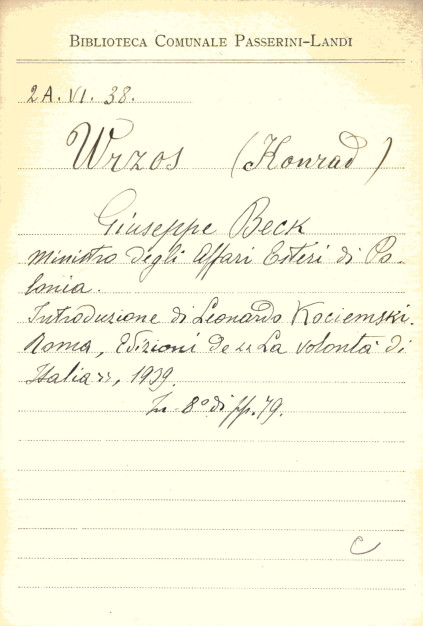 BIBLIOTECA COMUNALE PASSERINI-LANDI
2A. VI. 38.
Wrzos (Konrad)
Giuseppe Beck
ministro degli Affari Esteri di Po-
lonia.
Introduzione di Leonardo Kociemski.
Roma, Edizioni de « La volontà di
Italia », 1939.
In 8° di pp. 79.
C